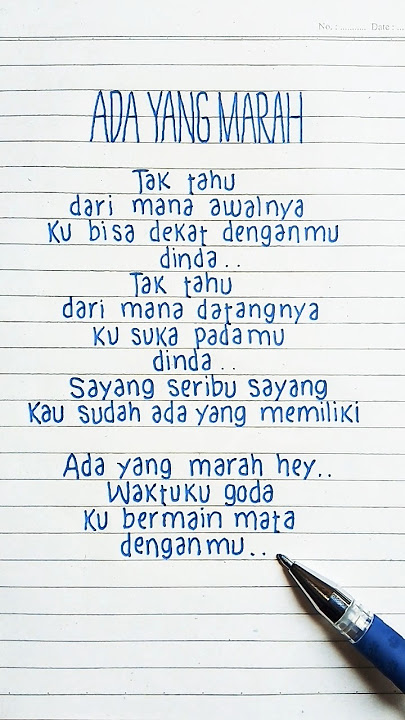 No. : ........... Date :
ADA YANG MARAH
Tak tahu
dari mana awalnya
Ku bisa dekat denganmu
dinda..
Tak tahu
dari mana datangnya
Ku suka padamu
dinda..
Sayang seribu sayang
Kau sudah ada yang memiliki
Ada yang marah hey..
Waktuku goda
Ku bermain mata
denganmu..